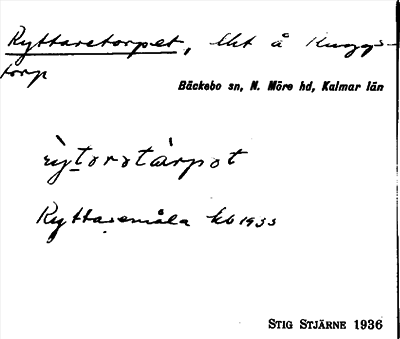 Ryttaretorpet, lht å Kuggs-
torp
Bäckebo sn, N. Möre hd, Kalmar län
Ryttaremåla kb 1933
STIG STJÄRNE 1936